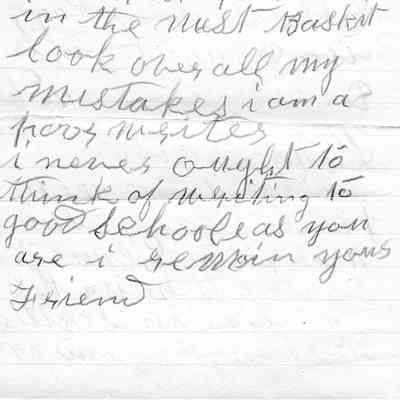 in the wast Baskit
look over all my
mistakes i am a
poor writer
i never ought to
think of writing to
good Schooler as you
are i remain your
Friend